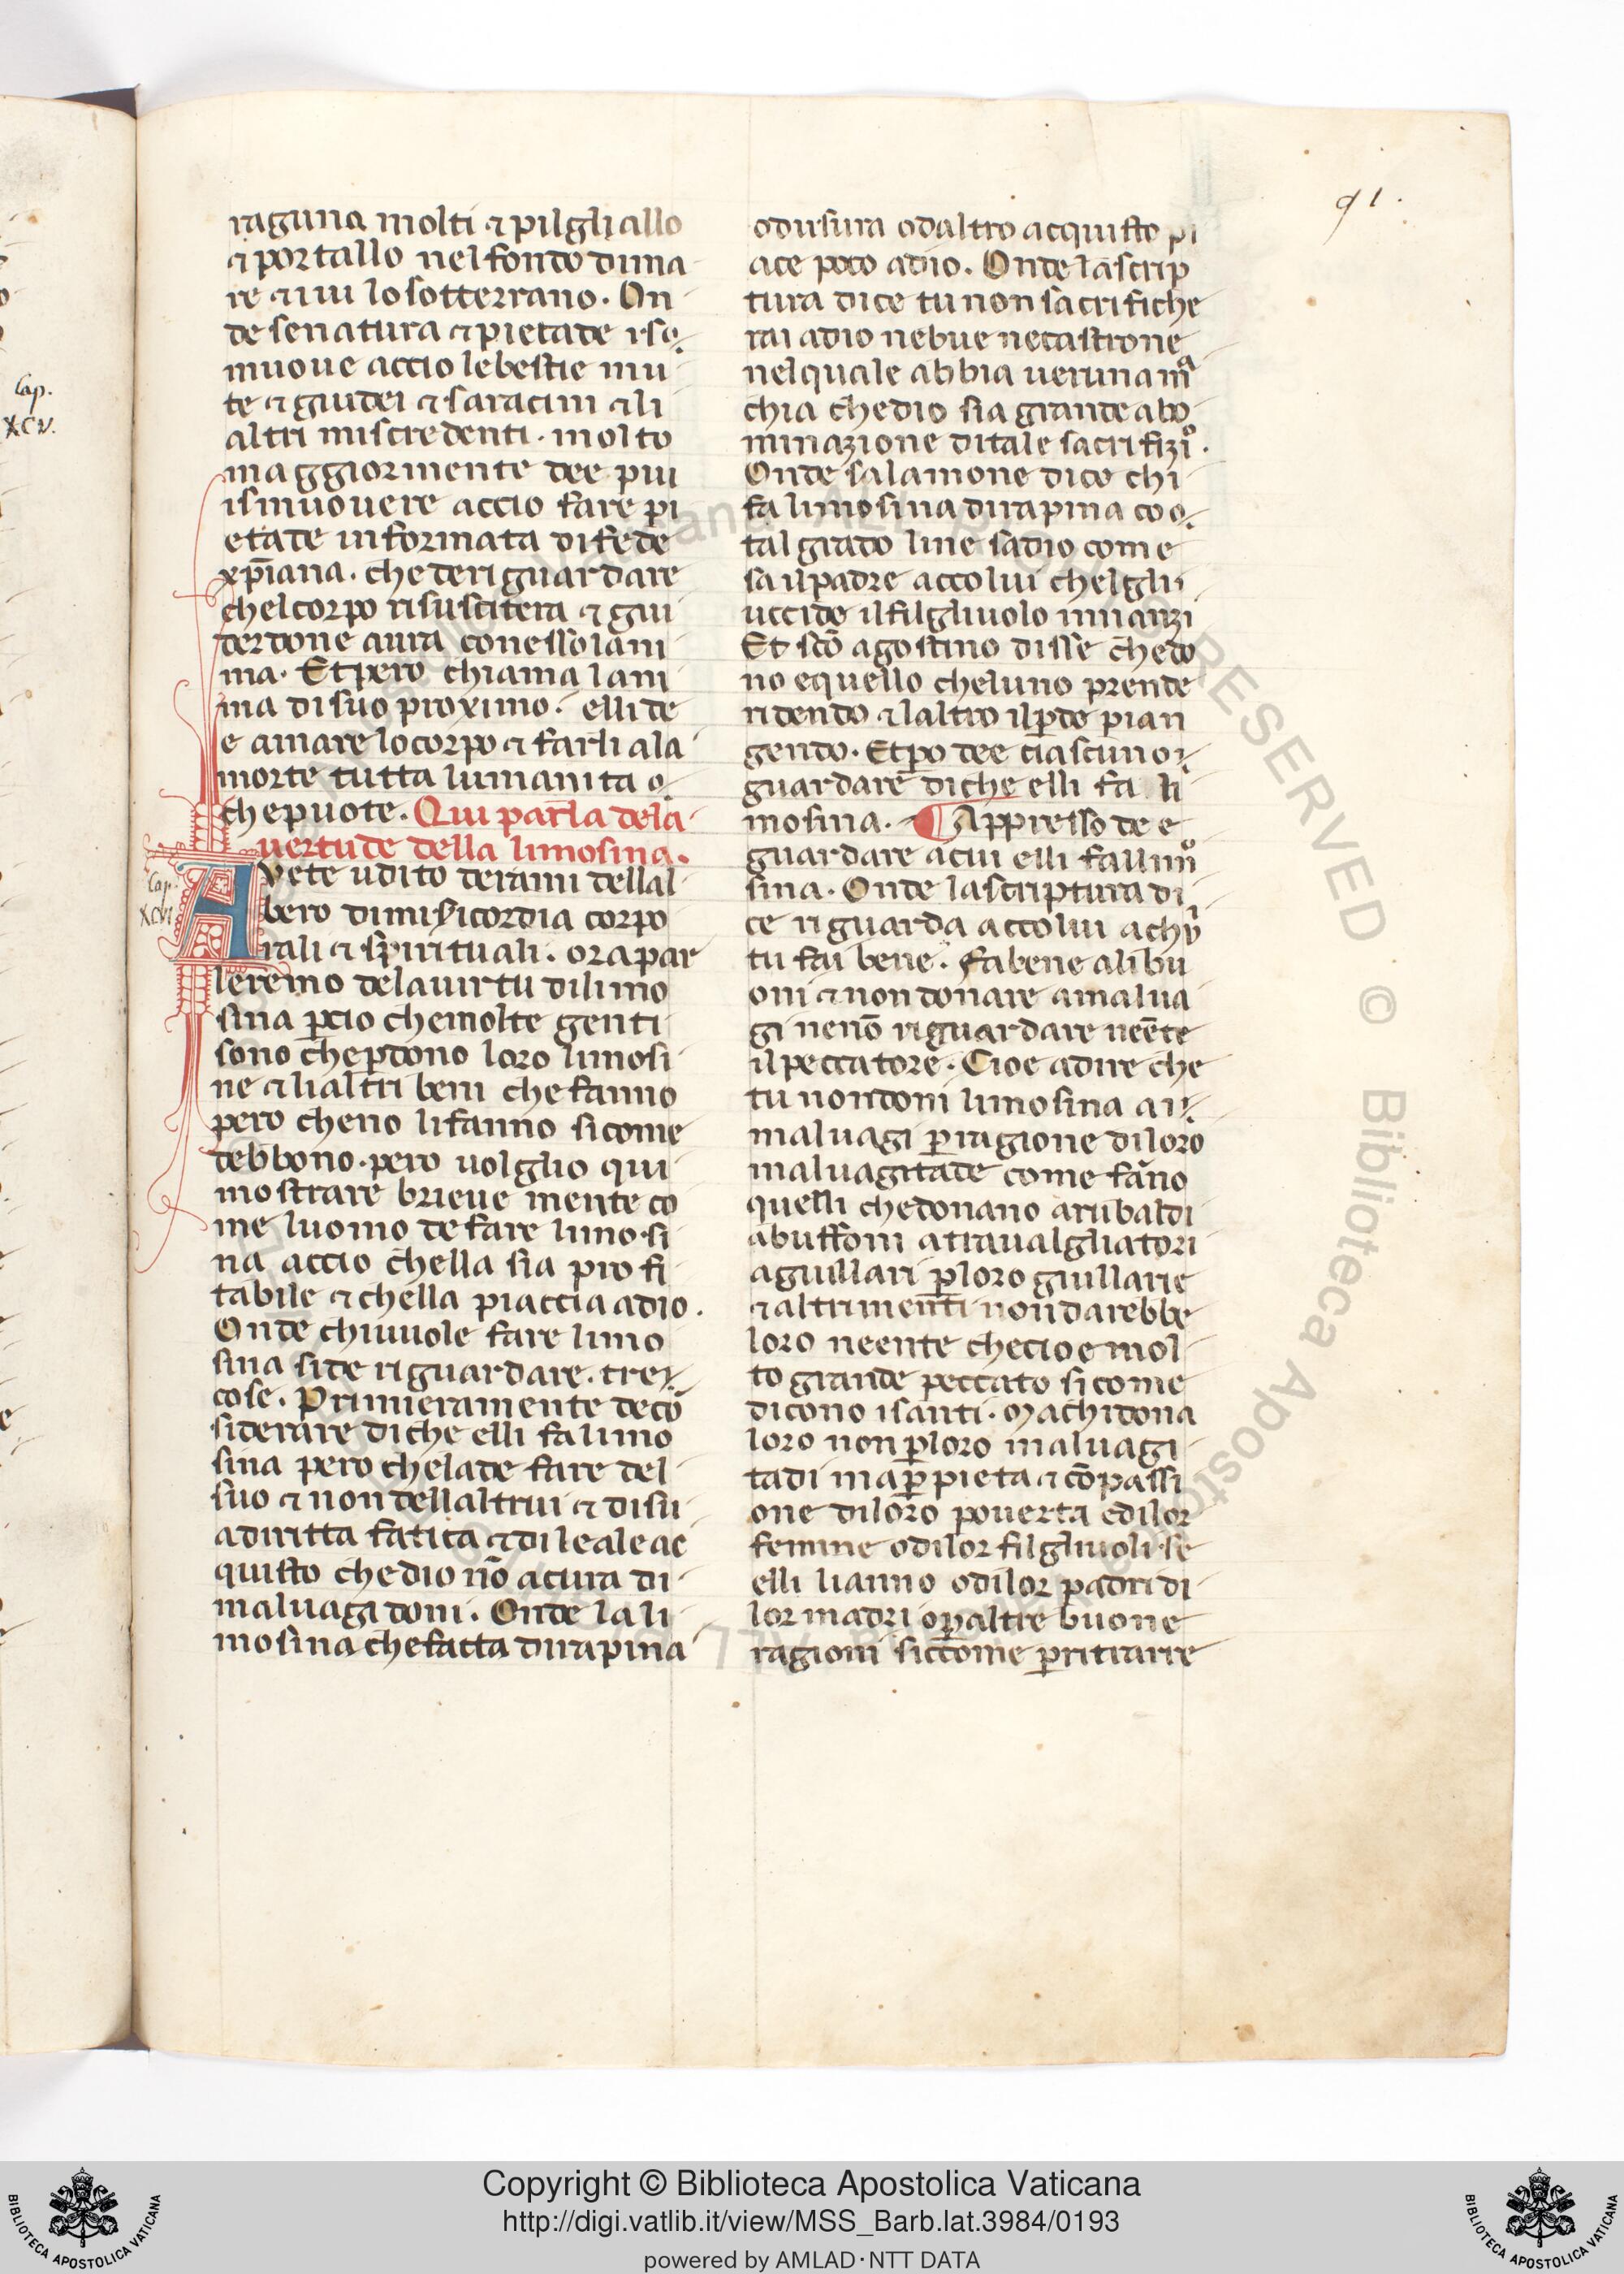 91.
raguna molti ⁊ pilgliallo
⁊ portallo nel fondo dima
re ⁊ iui lo sotterrano. On
de se natura ⁊ pietade iso
muoue accio le bestie mu
te ⁊ giudei ⁊ saracini ⁊ li
altri miscredenti. molto
maggiormente dee piu
ismuouere accio fare pi
etate informata di fede
xp̄iana. che de riguardare
chel corpo risuscitera ⁊ gui
derdone aura con esso lani
ma. Et pero chi ama lani
ma di suo proximo. elli de
e amare lo corpo ⁊ farli ala
morte tutta lumanita
che puote. Qui parla dela
uertude della limosina.
Cap.
XCVI
Auete udito de rami dellal
bero di mis̄icordia corpo
rali ⁊ sp̄irituali. ora par
leremo dela uirtu di limo
sina p̄cio che molte genti
sono che p̄dono loro limosi
ne ⁊ li altri beni che fanno
pero che no li fanno si come
debbono. pero uolglio qui
mostrare brieue mente co
me luomo de fare limosi
na accio chella sia profi
tabile ⁊ chella piaccia adio.
Onde chi uuole fare limo
sina si de riguardare. tre
cose. Primieramente de cō
siderare di che elli fa limo
sina pero che la de fare del
suo ⁊ non dellaltrui ⁊ di su
a diritta fatica ⁊ di leale ac
quisto che dio nō a cura di
maluagi doni. Onde la li
mosina che fatta di rapina
o dusura o daltro acquisto pi
ace poco adio. Onde la scrip
tura dice tu non sacrifiche
rai adio ne bue ne castrone
nel quale abbia ueruna mᵃ
chia che dio sia grande abo
minazione di tale sacrifiziᵒ.
Onde salamone dice chi
fa limosina di rapina co
tal grado line sa dio come
sa il padre accolui chelgli
uccide il filgliuolo innanzi
Et sc̄o agostino disse che do
no e quello che luno prende
ridendo ⁊ laltro il p̄de pian
gendo. Et po dee ciascuno
guardare di che elli fa li
mosina. ¶ Appresso de e
guardare a cui elli fa limᵒ
sina. Onde la scriptura di
ce riguarda accolui a chui
tu fai bene. Fa bene ali bu
oni ⁊ non donare a malua
gi ne nō riguardare neēte
il peccatore. Cioe adire che
tu non doni limosina ai
maluagi p̄ ragione di loro
maluagitade come fāno
quelli che donano a rubaldi
a buffoni a traualgliatori
a giullari p̄ loro giullarie
⁊ altrimenti non darebbe
loro neente che cio e mol
to grande peccato si come
dicono i santi. Ma chi dona
loro non p̄ loro maluagi
tadi ma p̄ pieta ⁊ cōpassi
one di loro pouerta e di lor
femine o di lor filgliuoli se
elli lianno o di lor padri di
lor madri o p̄ altre buone
ragioni siccome p̄ ritrarre
Cap.
XCV.
Copyright © Biblioteca Apostolica Vaticana
http://digi.vatlib.it/view/MSS_Barb.lat.3984/0193
powered by AMLAD·NTT DATA
BIBLIOTECA APOSTOLICA VATICANA
BIBLIOTECA APOSTOLICA VATICANA